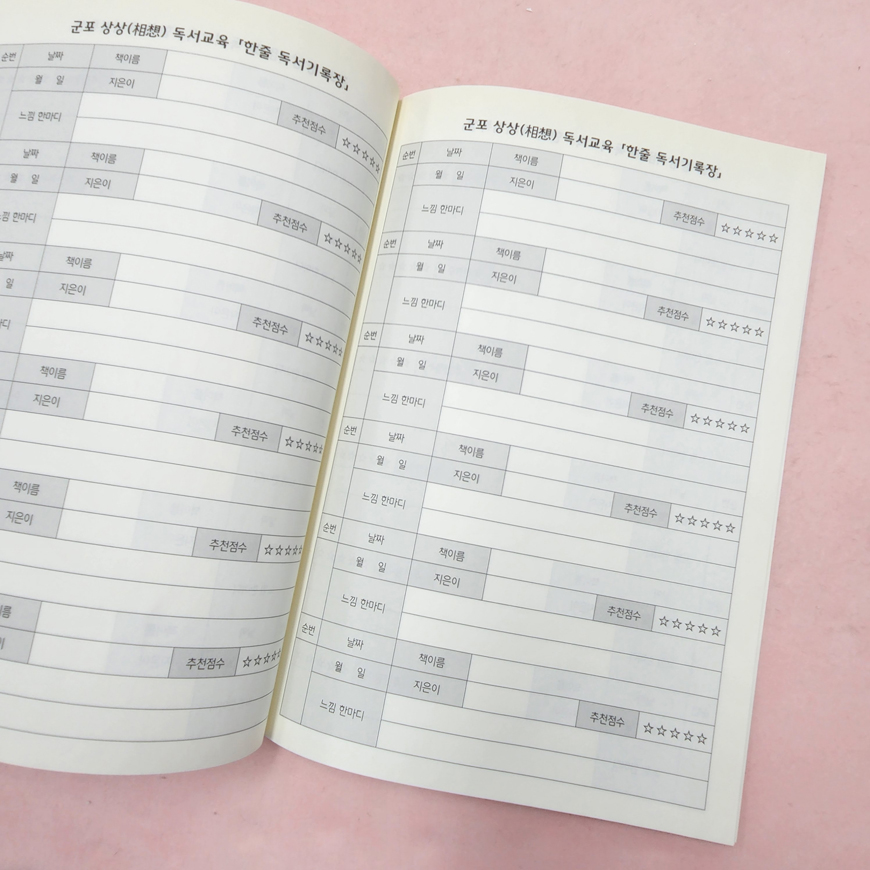 군포 상상(相想) 독서교육 「한줄 독서기록장」
순번 날짜 책이름
월 일 지은이
추천점수 ☆☆☆☆☆
느낌 한마디
날짜 책이름
월 일 지은이
추천점수 ☆☆☆☆☆
느낌 한마디
날짜 책이름
일 지은이
추천점수 ☆☆☆☆☆
책이름
지은이
추천점수 ☆☆☆☆☆
책이름
지은이
추천점수 ☆☆☆☆☆
추천점수 ☆☆☆☆☆
군포 상상(相想) 독서교육 「한줄 독서기록장」
순번 날짜 책이름
월 일 지은이
추천점수 ☆☆☆☆☆
느낌 한마디
순번 날짜 책이름
월 일 지은이
추천점수 ☆☆☆☆☆
느낌 한마디
순번 날짜 책이름
월 일 지은이
추천점수 ☆☆☆☆☆
느낌 한마디
순번 날짜 책이름
월 일 지은이
추천점수 ☆☆☆☆☆
느낌 한마디
순번 날짜 책이름
월 일 지은이
추천점수 ☆☆☆☆☆
느낌 한마디
순번 날짜 책이름
월 일 지은이
추천점수 ☆☆☆☆☆
느낌 한마디